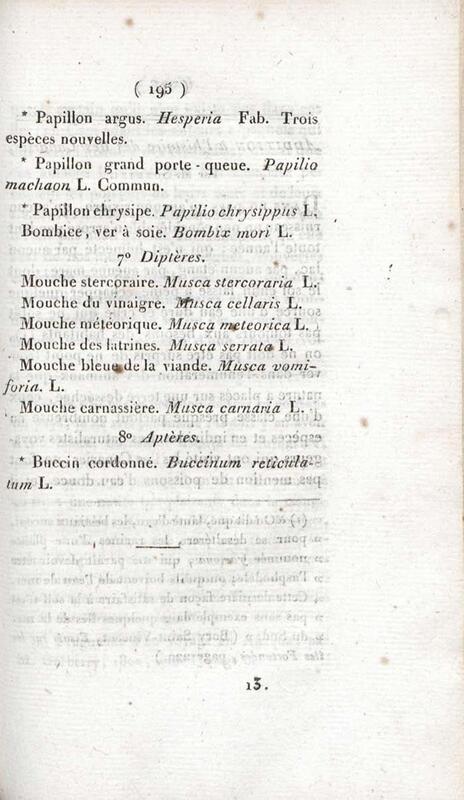 ( 195 )
* Papillon argus. Hesperia Fab. Trois
espèces nouvelles.
* Papillon grand porte-queue. Papilio
machaon L. Commun.
* Papillon chrysipe. Papilio chrysippus L.
Bombice, ver à soie. Bombix mori L.
7° Diptères.
Mouche stercoraire. Musca stercoraria L.
Mouche du vinaigre. Musca cellaris L.
Mouche météorique. Musca meteorica L.
Mouche des latrines. Musca serrata L.
Mouche bleue de la viande. Musca vomi-
foria. L.
Mouche carnassière. Musca carnaria L.
8° Aptères.
* Buccin cordonné. Buccinum reticula-
tum L.
13.